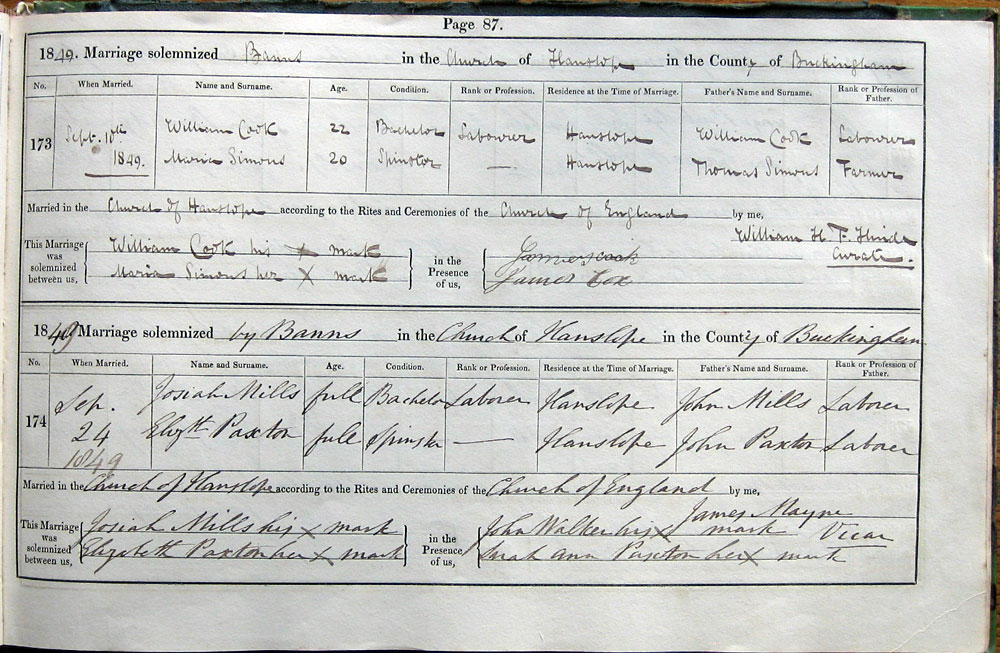 Page 87.
1849. Marriage solemnized Banns in the Church of Hanslope in the County of Buckingham
No. When Married. Name and Surname. Age. Condition. Rank or Profession. Residence at the Time of Marriage. Father's Name and Surname. Rank or Profession of Father.
173 Sept. 10th 1849. William Cook 22 Bachelor Labourer Hanslope William Cook Labourer
Maria Simons 20 Spinster — Hanslope Thomas Simons Farmer
Married in the Church of Hanslope according to the Rites and Ceremonies of the Church of England by me,
William H. F. Hinde
Curate.
This Marriage was solemnized between us, William Cook his X mark in the Presence of us, cook
Maria Simons her X mark James Cox
1849 Marriage solemnized by Banns in the Church of Hanslope in the County of Buckingham
No. When Married. Name and Surname. Age. Condition. Rank or Profession. Residence at the Time of Marriage. Father's Name and Surname. Rank or Profession of Father.
174 Sep. 24 1849 Josiah Mills full Bachelor Laborer Hanslope John Mills Laborer
Elizth Paxton full Spinster — Hanslope John Paxton Laborer
Married in the Church of Hanslope according to the Rites and Ceremonies of the Church of England by me,
James Mayne
Vicar
This Marriage was solemnized between us, Josiah Mills his X mark in the Presence of us, John Walker his X mark
Elizabeth Paxton her X mark Sarah Ann Paxton her X mark